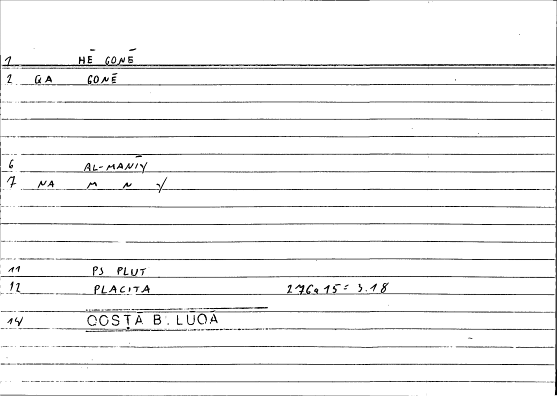 1 HĒ GONĒ
2 QA GONĒ
6 AL-MANĪY
7 NA M N Y
11 PS PLUT
12 PLACITA 276a15 = 3.18
14 QOSTĀ B. LŪQĀ